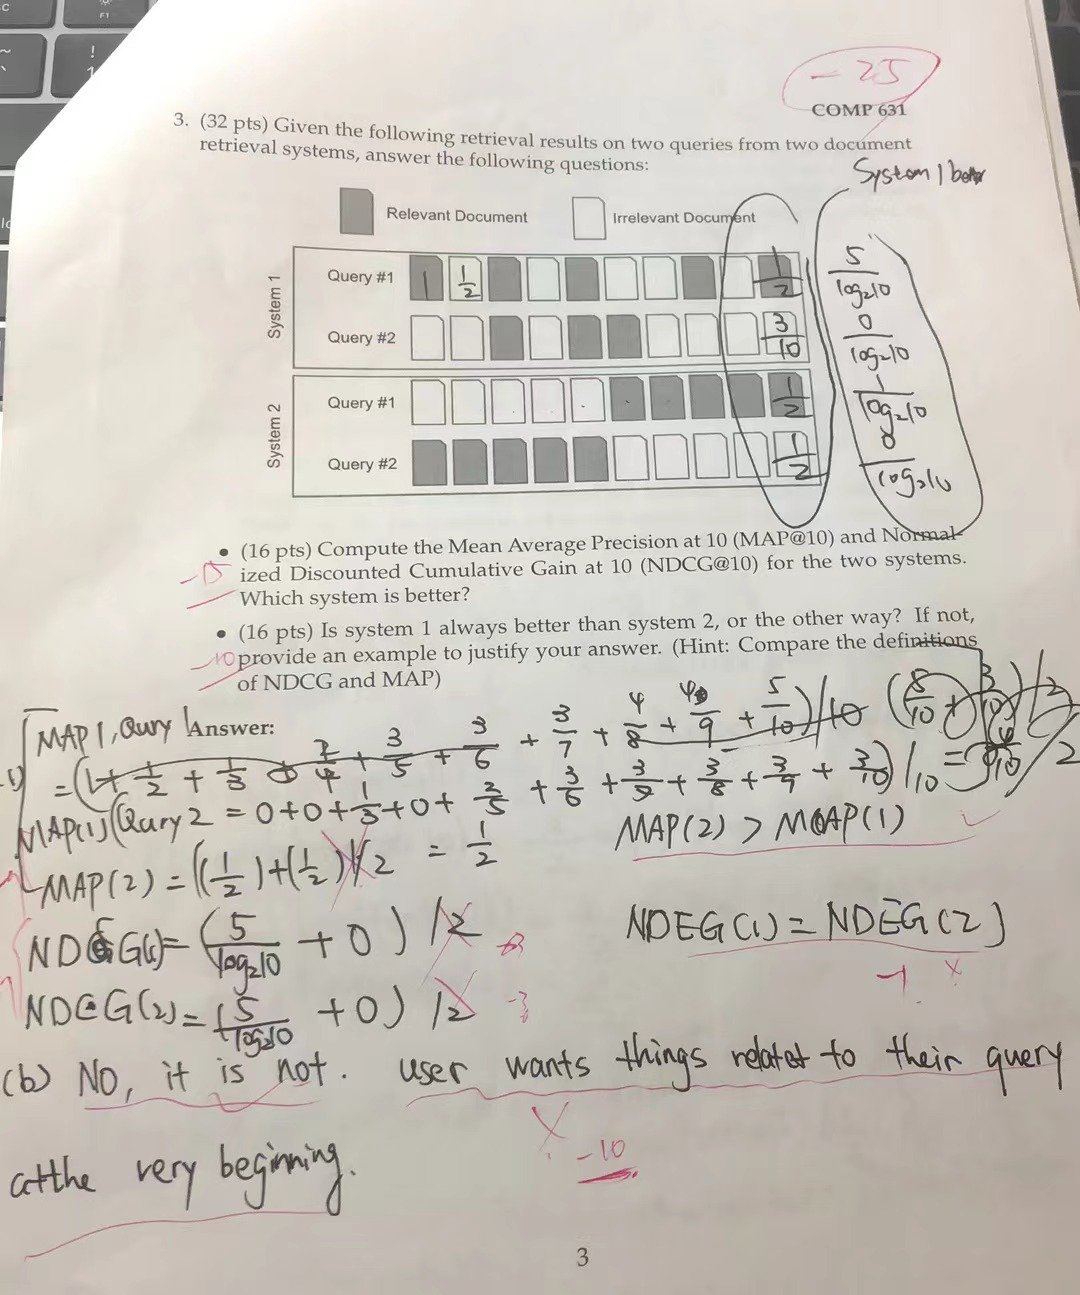 - 25
COMP 631
3. (32 pts) Given the following retrieval results on two queries from two document
retrieval systems, answer the following questions:
System 1 better
Relevant Document
Irrelevant Document
System 1
Query #1
1 1/2 1/2
5/log₂10
Query #2
3/10
0/log₂10
System 2
Query #1
1/2
1/log₂10
Query #2
1/2
0/log₂10
• (16 pts) Compute the Mean Average Precision at 10 (MAP@10) and Normal-
ized Discounted Cumulative Gain at 10 (NDCG@10) for the two systems.
Which system is better?
-15
• (16 pts) Is system 1 always better than system 2, or the other way? If not,
provide an example to justify your answer. (Hint: Compare the definitions
of NDCG and MAP)
-10
Answer:
MAP 1, Qury 1
= (1 + 1/2 + 1/3 + 2/4 + 3/5 + 3/6 + 3/7 + 4/8 + 4/9 + 5/10)/10 (5/10 + 3/10)/2
MAP(1)(Qury 2 = 0+0+1/3+0+2/5 + 3/6 + 3/7 + 3/8 + 3/9 + 3/10)/10 =
MAP(2) = ((1/2)+(1/2))/2 = 1/2
MAP(2) > MAP(1)
NDCG(1)= (5/log₂10 + 0) /2
NDEG(1) = NDEG(2)
-1 x
NDCG(2)= (5/log₂10 + 0) /2
-3
(b) No, it is not. user wants things relatet to their query
at the very beginning.
x -10
3